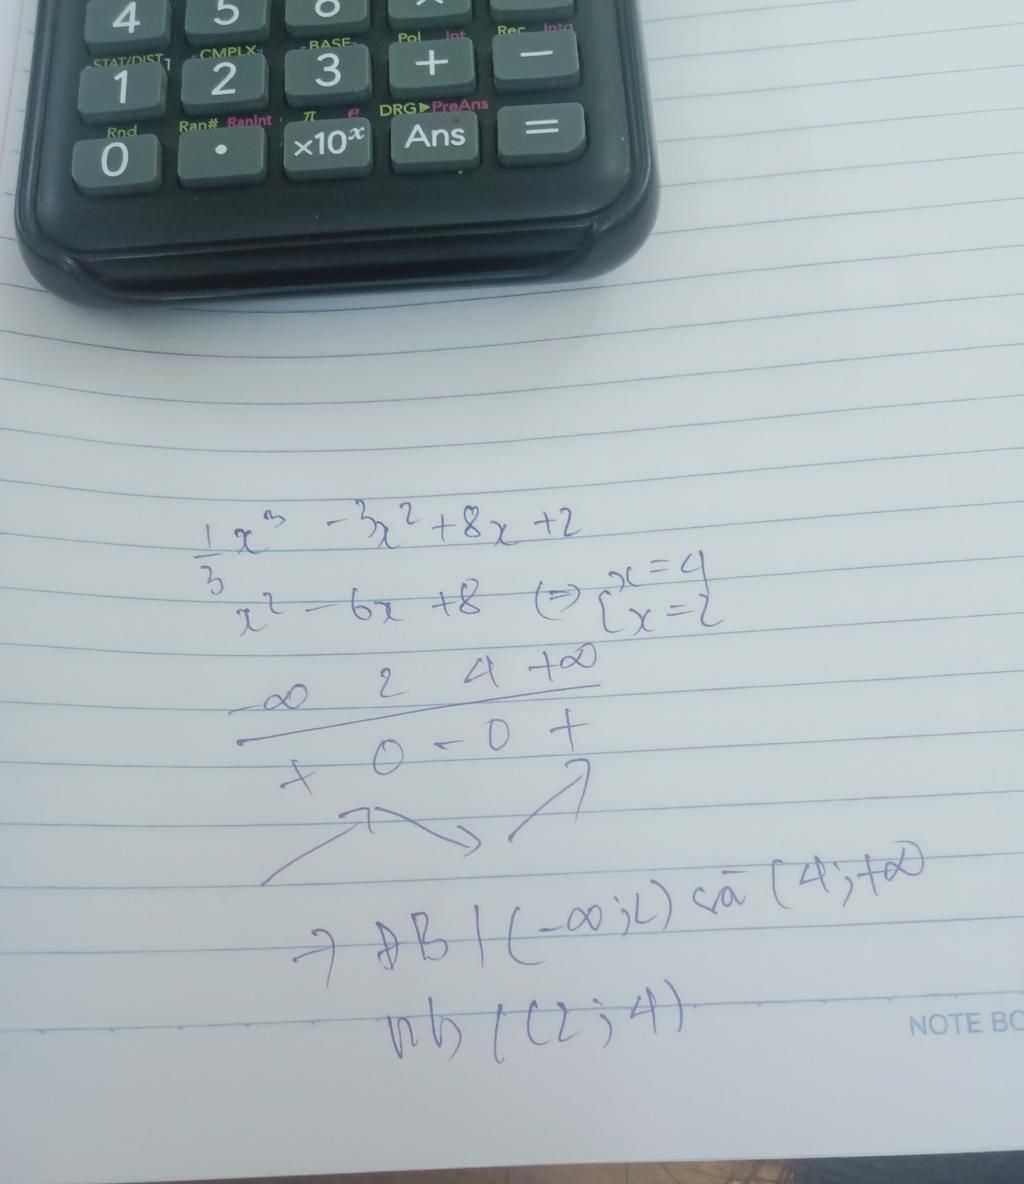 4 5
STAT/DIST CMPLX BASE Pol Int Rec Intg
1 2 3 + −
Rnd Ran# RanInt π e DRG▶PreAns
0 • ×10ˣ Ans =
1/3 x³ - 3x² + 8x + 2
x² - 6x + 8 (=) [x = 4
x = 2
-∞ 2 4 +∞
+ 0 - 0 +
→ ĐB / (-∞; 2) và (4; +∞
nb / (2; 4)
NOTE BO